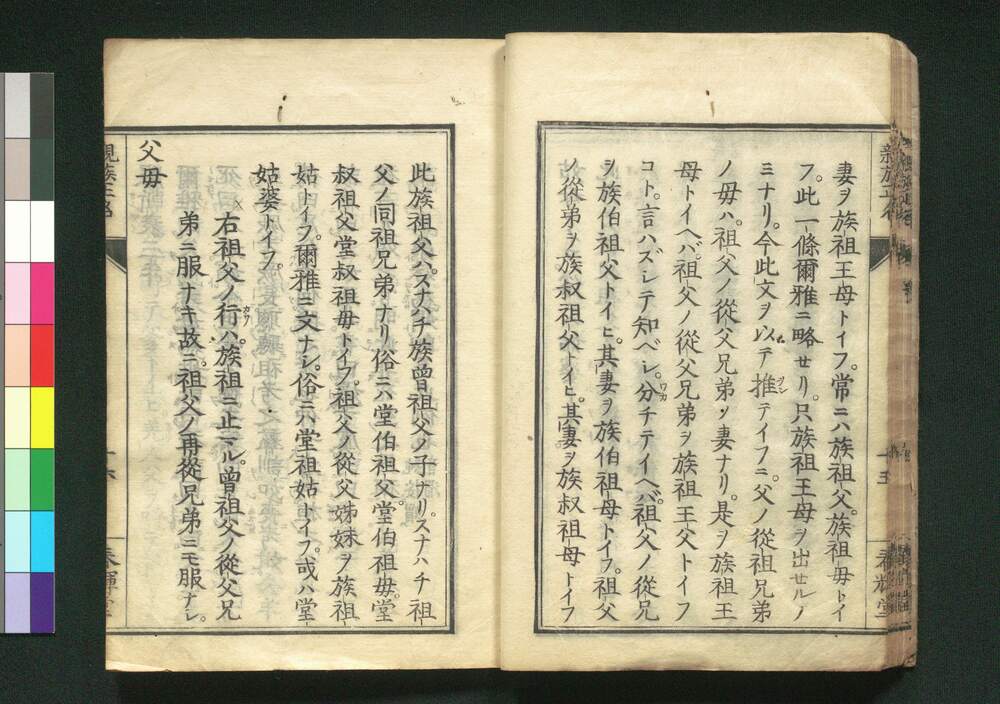 妻ヲ族祖王母トイフ。常ニハ族祖父。族祖母トイ
フ。此一條爾雅ニ略セリ。只族祖王母ヲ出セルノ
ミナリ。今此文ヲ以テ推テイフニ。父ノ從祖兄弟
ノ母ハ。祖父ノ從父兄弟ノ妻ナリ。是ヲ族祖王
母トイヘバ。祖父ノ從父兄弟ヲ族祖王父トイフ
コト。言ハズシテ知ベシ。分チテイヘバ。祖父ノ從兄
ヲ族伯祖父トイヒ。其妻ヲ族伯祖母トイフ。祖父
ノ從弟ヲ族叔祖父トイヒ。其妻ヲ族叔祖母トイフ
親族正名
十五
春輝堂
此族祖父ハ。スナハチ族曾祖父ノ子ナリ。スナハチ祖
父ノ同祖兄弟ナリ俗ニハ堂伯祖父。堂伯祖母。堂
叔祖父堂叔祖母トイフ。祖父ノ從父姊妹ヲ族祖
姑トイフ。爾雅ニ文ナシ。俗ニハ堂祖姑トイフ。或ハ堂
姑婆トイフ。
右祖父ノ行ハ。族祖ニ止マル。曾祖父ノ從父兄
弟ニ服ナキ故ニ。祖父ノ再從兄弟ニモ服ナシ。
父母
親族正名
十六
春輝堂